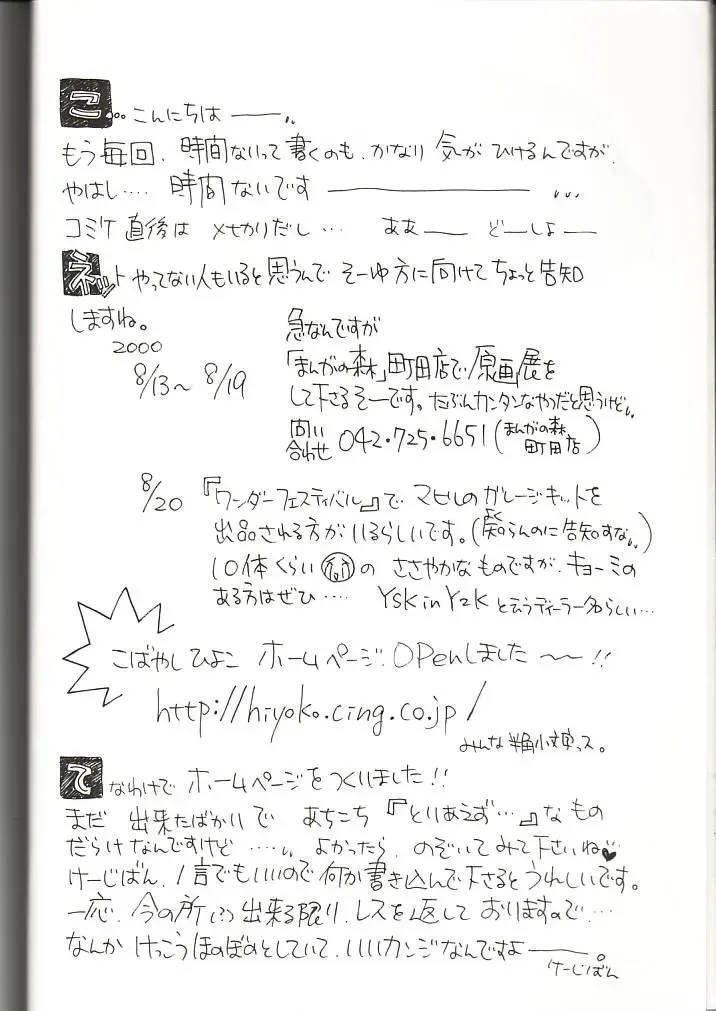 こ…こんにちは――…
もう毎回、時間ないって書くのも、かなり気がひけるんですが、
やはし…. 時間ないです――――…
コミケ直後は メせかりだし… ああ―― どーしよ―
ネット やってない人もいると思うんで そーゆ方に向けてちょっと告知
しますね。
2000
8/13～8/19
急なんですが
「まんがの森」町田店で「原画」展を
して下さるそーです。たぶんカンタンなやつだと思うけど…
問い合わせ 042・725・6651（まんがの森 町田店）
8/20 『ワンダーフェスティバル』で マヒルのガレージキットを
出品される方がいるらしいです。（よく知らんのに告知すな…）
10体くらい の ささやかなものですが、キョーミの
ある方はぜひ…. YSK in Y2K と云うディーラー名らしい…
こばやしひよこ ホームページ OPenしました～～!!
http://hiyoko.cing.co.jp/
みんな半角小文字っス。
てなわけで ホームページをつくりました!!
まだ 出来たばかりで あちこち『とりあえず…』なもの
だらけなんですけど ….. よかったら、のぞいてみて下さいね♥
けーじばん、1言でもいいので何か書き込んで下さるとうれしいです。
一応、今の所は出来る限り、レスを返しておりますので…
なんか けっこうほのぼのとしていて、いいカンジなんですよ――。
けーじばん